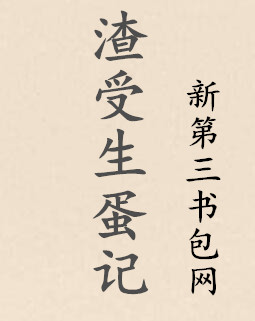 渣受生蛋记
新第三书包网